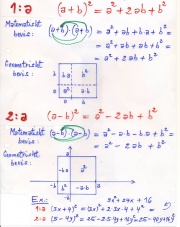 1:a (a+b)² = a² + 2ab + b²
Matematiskt
bevis: (a+b)·(a+b) = a² + ab + ba + b² =
= a² + ab + ab + b² =
= a² + 2ab + b²
Geometriskt
bevis:
ba b²
a² ab
2:a (a-b)² = a² - 2ab + b²
Matematiskt
bevis: (a-b)·(a-b) = a² - ab - ba + b² =
= a² - 2ab + b²
Geometriskt
bevis:
Ex.: 9x² + 24x + 16
1:a (3x+4)² = (3x)² + 2·3x·4 + 4² =
2:a (5-4y)² = 25 - 2·5·4y + 16y² = 25 - 40y + 16y²